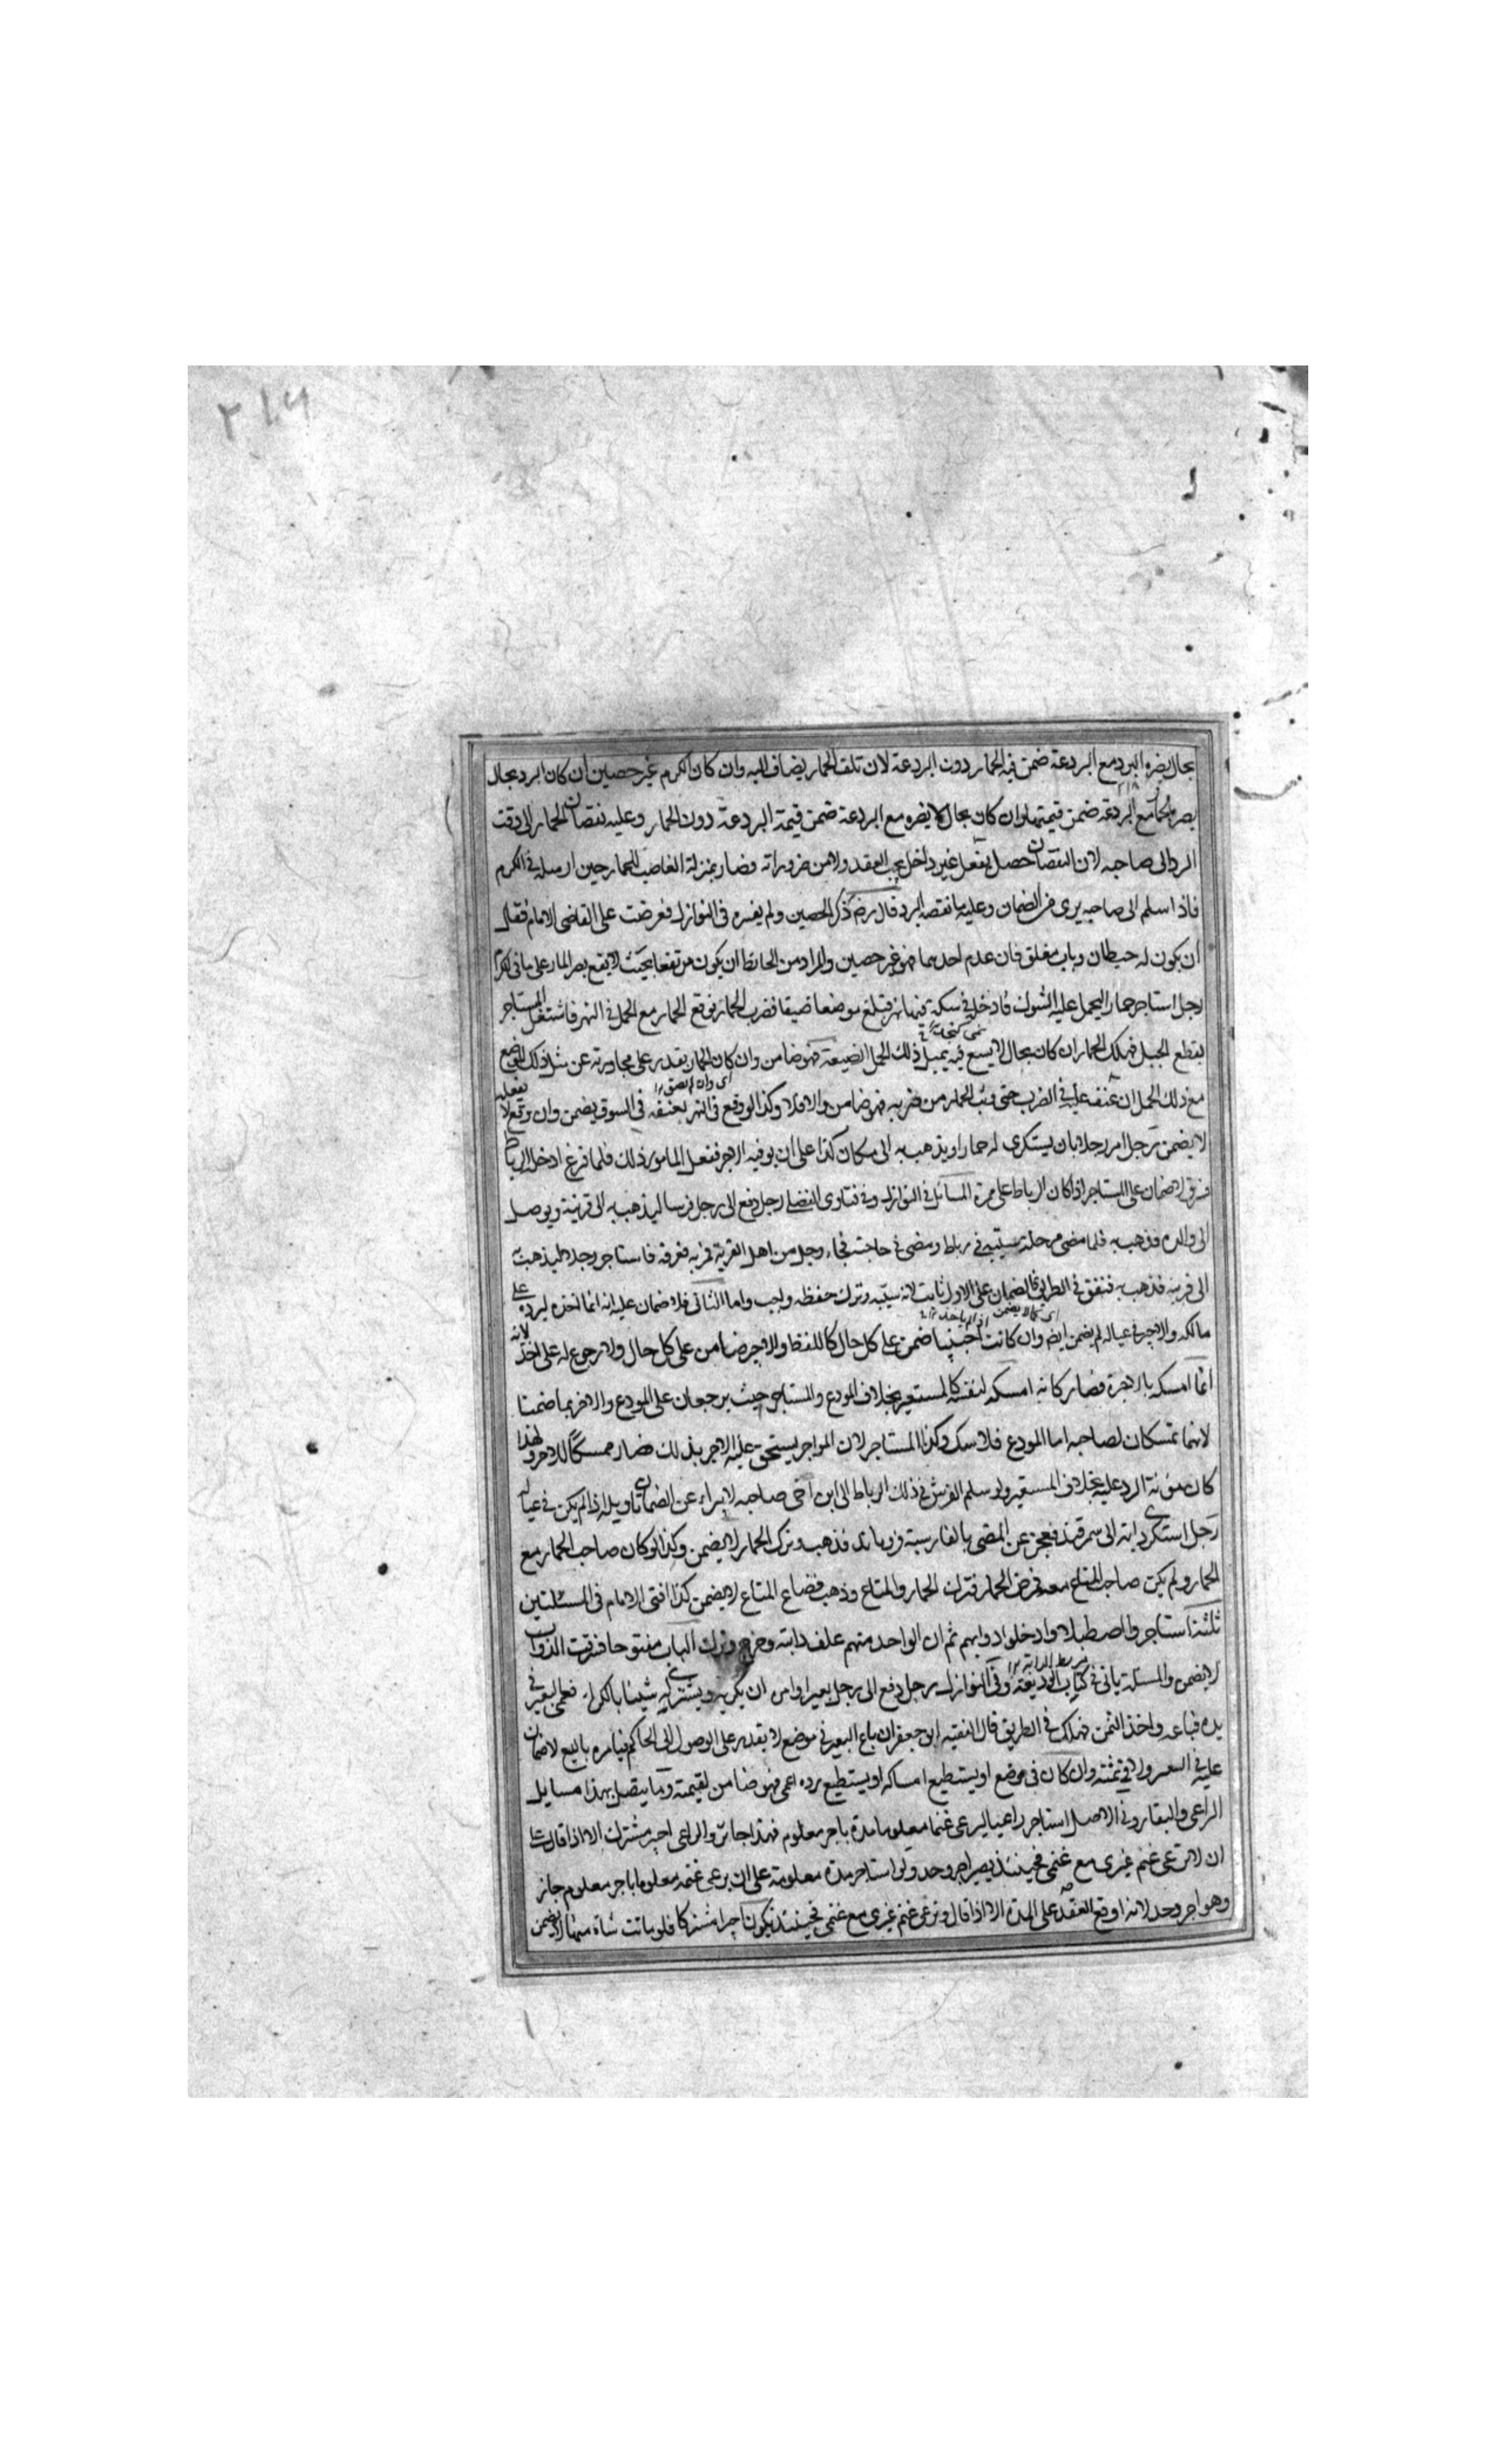 ٢١٦
بحال يضره البرد مع البردعة ضمن فيه الحمار دون البردعة لان تلف الحمار يضاف اليه وان كان الكرم غير حصين ان كان البرد بحال
يضر بالحمار مع البردعة ضمن قيمتهما وان كان بحال لا يضره مع البردعة ضمن قيمة البردعة دون الحمار وعليه نقصان الحمار الى وقت
الرد الى صاحبه لان النقصان حصل بفعل غير داخل تحت العقد ولا من ضروراته فصار بمنزلة الغاصب للحمار حين ارسله في الكرم
فاذا سلم الى صاحبه يبرى من الضمان وعليه ما نقصه البرد قال رضه ذكر الحصين ولم يفسره في النوازل فعرضت على القاضي الامام فقال
ان يكون له حيطان وباب مغلق فان عدم احدهما فهو غير حصين والمراد من الحائط ان يكون مرتفعا بحيث لا يقع بصر المار على ما في الكرم
رجل استاجر حمارا ليحمل عليه الشوك فادخله في سكة فيها نهر فبلغ موضعا ضيقا فضرب الحمار فوقع الحمار مع الحمل في النهر فاشتغل المستاجر
بقطع الحبل فهلك الحمار ان كان بحال لا يسع فيه بمثل ذلك الحمل الضيعة فهو ضامن وان كان الحمار يقدر على مجاوزته عن مثل ذلك الموضع
مع ذلك الحمل ان عنف عليه في الضرب حتى وثب الحمار من ضربه فهو ضامن والا فلا وكذا لو وقع في النهر بعنفه في السوق يضمن وان وقع لا بفعله
لا يضمن رجل امر رجلا بان يستكرى له حمارا ويذهب به الى مكان كذا على ان يوفيه الاجر ففعل المامور ذلك فلما فرغ ادخل الرباط
فسرق لا ضمان على المستاجر اذا كان الرباط على ممره المسائل في النوازل وفي فتاوى الفضلي رجل دفع الى رجل فرسا ليذهب به الى قريته ويوصل
الى والده فذهب به فلما مضى مرحلة سيّبه في رباط ومضى في حاجته فجاء رجل من اهل القرية فمر به فعرفه فاستاجر رجلا ليذهب به
الى قريته فذهب به فنفق في الطريق فالضمان على الاول ثابت لانه سيّبه وترك حفظه واجب واما الثاني فلا ضمان عليه انه انما اخذه ليرده على
مالكه والاجير في عياله لم يضمن ايضا وان كانت اجنبيا ضمن على كل حال كاللقطة والاجير ضامن على كل حال ولا رجوع له على اخذ لانه
انما امسكه بالاجرة فصار كانه امسكه لنفسه كالمستعير بخلاف المودع والمستاجر حيث يرجعان على المودع والاخر بما ضمنا
لانهما تمسكان لصاحبه اما المودع فلا شك وكذا المستاجر لان المواجر يستحق عليه الاجر بذلك فصار ممسكا للاجر ولهذا
كان مؤنة الرد عليه بخلاف المستعير ولو سلم الفرس في ذلك الرباط الى ابن اخي صاحبه لا يبراء عن الضمان تاويله اذا لم يكن في عياله
رجل استكرى دابة الى سمرقند فعجز عن المضى بالفارسية فروماند فذهب وترك الحمار لا يضمن وكذا لو كان صاحب الحمار مع
الحمار ولم يكن صاحب المتاع معه فمرض الحمار فترك الحمار والمتاع وذهب فضاع المتاع لا يضمن كذا افتى الامام في المسئلتين
ثلثة استاجروا اصطبلا وادخلوا دوابهم ثم ان الواحد منهم علف دابته وخرج وترك الباب مفتوحا فسرقت الدواب
لا يضمن والمسئلة ياتي في كتاب الوديعة وفي النوازل رجل دفع الى رجل بعيرا وامر ان يكريه ويشترى له شيئا بالكراء فعمى البعير في
يده فباعه واخذ الثمن فهلك في الطريق قال الفقيه ابو جعفر ان باع البعير في موضع لا يقدر على الوصول الى الحاكم فيامره بالبيع لا ضمان
عليه في البعير ولا في ثمنه وان كان في موضع او يستطيع امساكه او يستطيع رده اعمى فهو ضامن لقيمته وما يتصل بهذا مسايل
الراعى والبقار وفي الاصل استاجر راعيا ليرعى غنما معلوما مدة باجر معلوم فهذا جائز والراعى اجير مشترك الا اذا قال
ان لا ترعى غنم غيرى مع غنمى فحينئذ يصير اجير وحد ولو استاجر مدة معلومة على ان يرعى غنمه معلوما باجر معلوم جاز
وهو اجير وحد لانه اوقع العقد على المدة الا اذا قال وترعى غنم غيرى مع غنمى فحينئذ يكون اجيرا مشتركا فلو ماتت شاة منها لا يضمن